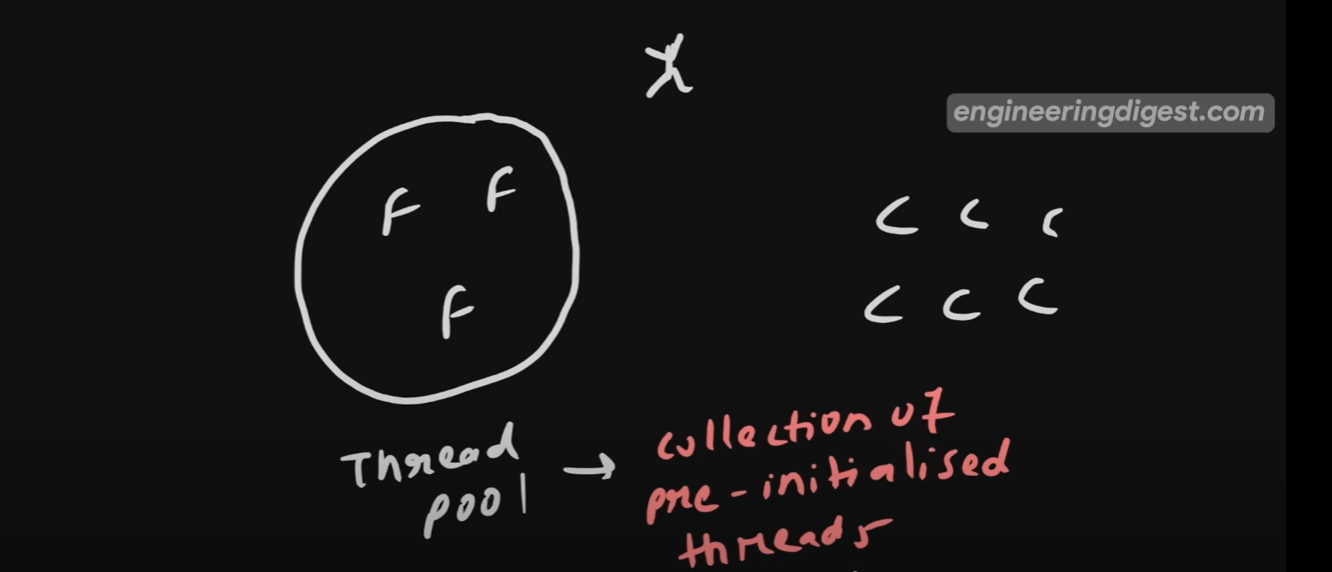 X
engineeringdigest.com
F F
C C C
F
C C C
Thread
pool → collection of
pre-initialised
threads